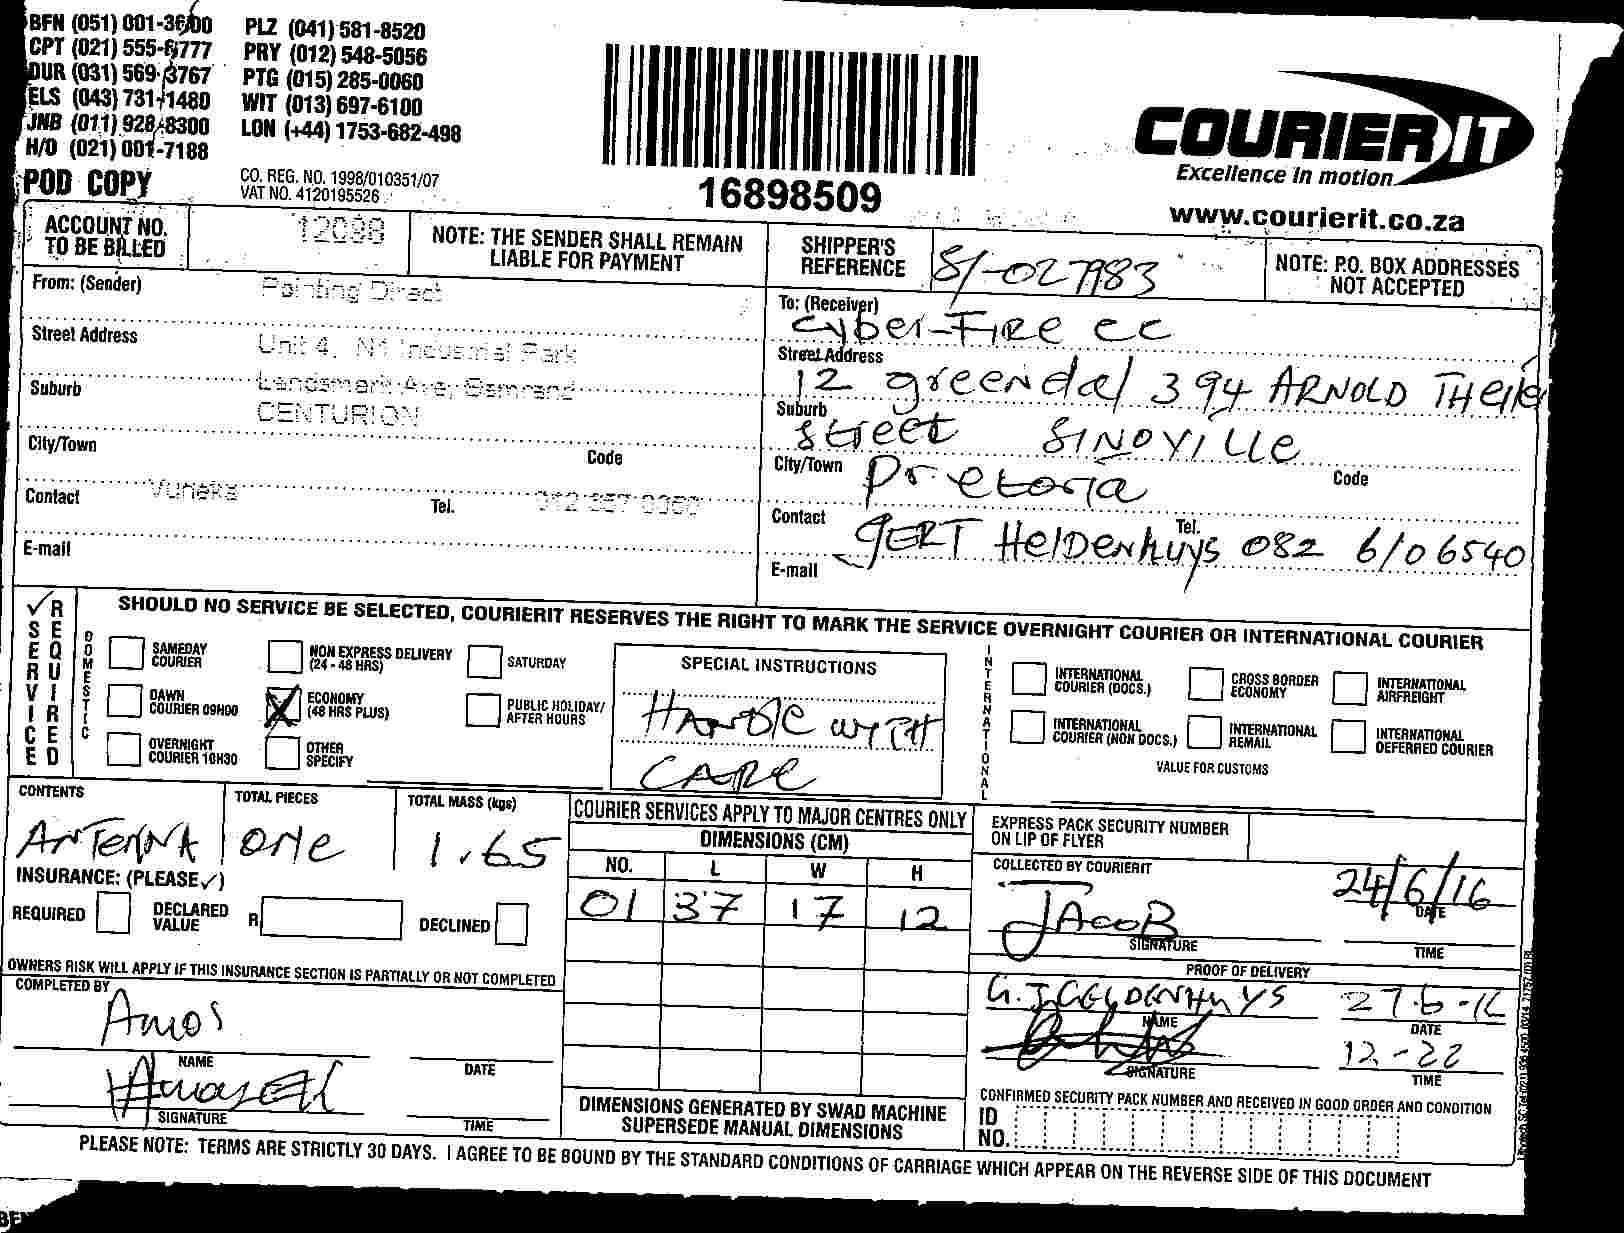 BFN (051) 001-3600 PLZ (041) 581-8520
CPT (021) 555-6777 PRY (012) 548-5056
DUR (031) 569-3767 PTG (015) 285-0060
ELS (043) 731-1480 WIT (013) 697-6100
JNB (011) 928-8300 LON (+44) 1753-682-498
H/O (021) 001-7188
POD COPY
CO. REG. NO. 1998/010351/07
VAT NO. 4120195526
16898509
COURIER IT
Excellence in motion
www.courierit.co.za
ACCOUNT NO. TO BE BILLED
12098
NOTE: THE SENDER SHALL REMAIN LIABLE FOR PAYMENT
SHIPPER'S REFERENCE
SI-027983
NOTE: P.O. BOX ADDRESSES NOT ACCEPTED
From: (Sender) Pointing Direct
Street Address Unit 4, N1 Industrial Park
Suburb Landsmark Ave, Samrand
CENTURION
City/Town Code
Contact Vuneka Tel. 012 657 0050
E-mail
To: (Receiver)
Cyber-FIRE CC
Street Address
12 greendal 394 ARNOLD
Suburb
street SINOVILLE
City/Town Pretoria Code
Contact GERT HelDenhuys Tel. 082 6106540
E-mail
SERVICE REQUIRED
SHOULD NO SERVICE BE SELECTED, COURIERIT RESERVES THE RIGHT TO MARK THE SERVICE OVERNIGHT COURIER OR INTERNATIONAL COURIER
DOMESTIC
SAMEDAY COURIER
NON EXPRESS DELIVERY (24 - 48 HRS)
SATURDAY
DAWN COURIER 09H00
ECONOMY (48 HRS PLUS)
PUBLIC HOLIDAY/ AFTER HOURS
OVERNIGHT COURIER 10H30
OTHER SPECIFY
SPECIAL INSTRUCTIONS
HANDLE WITH
CARE
INTERNATIONAL
INTERNATIONAL COURIER (DOCS.)
CROSS BORDER ECONOMY
INTERNATIONAL AIRFREIGHT
INTERNATIONAL COURIER (NON DOCS.)
INTERNATIONAL REMAIL
INTERNATIONAL DEFERRED COURIER
VALUE FOR CUSTOMS
CONTENTS
ANTENNA
TOTAL PIECES
ONE
TOTAL MASS (kgs)
1.65
INSURANCE: (PLEASE ✓)
REQUIRED DECLARED VALUE R DECLINED
OWNERS RISK WILL APPLY IF THIS INSURANCE SECTION IS PARTIALLY OR NOT COMPLETED
COMPLETED BY
Amos
NAME DATE
SIGNATURE TIME
COURIER SERVICES APPLY TO MAJOR CENTRES ONLY
DIMENSIONS (CM)
NO. L W H
01 37 17 12
DIMENSIONS GENERATED BY SWAD MACHINE SUPERSEDE MANUAL DIMENSIONS
EXPRESS PACK SECURITY NUMBER ON LIP OF FLYER
COLLECTED BY COURIERIT
JACOB 24/6/16
DATE
SIGNATURE TIME
PROOF OF DELIVERY
G.J GELDENHUYS 27-6-16
NAME DATE
12-22
SIGNATURE TIME
CONFIRMED SECURITY PACK NUMBER AND RECEIVED IN GOOD ORDER AND CONDITION
ID NO.
PLEASE NOTE: TERMS ARE STRICTLY 30 DAYS. I AGREE TO BE BOUND BY THE STANDARD CONDITIONS OF CARRIAGE WHICH APPEAR ON THE REVERSE SIDE OF THIS DOCUMENT